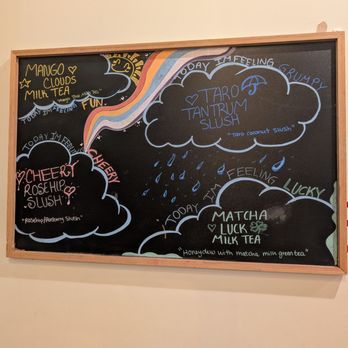 MANGO
CLOUDS
MILK TEA
TODAY I'M FEELING FUN
TODAY I'M FEELING GRUMPY
TARO
TANTRUM
SLUSH
"taro coconut slush"
TODAY I'M FEELING CHEERY
CHEERY
ROSEHIP
SLUSH
TODAY I'M FEELING LUCKY
MATCHA
LUCK
MILK TEA
"Honeydew with matcha milk green tea"